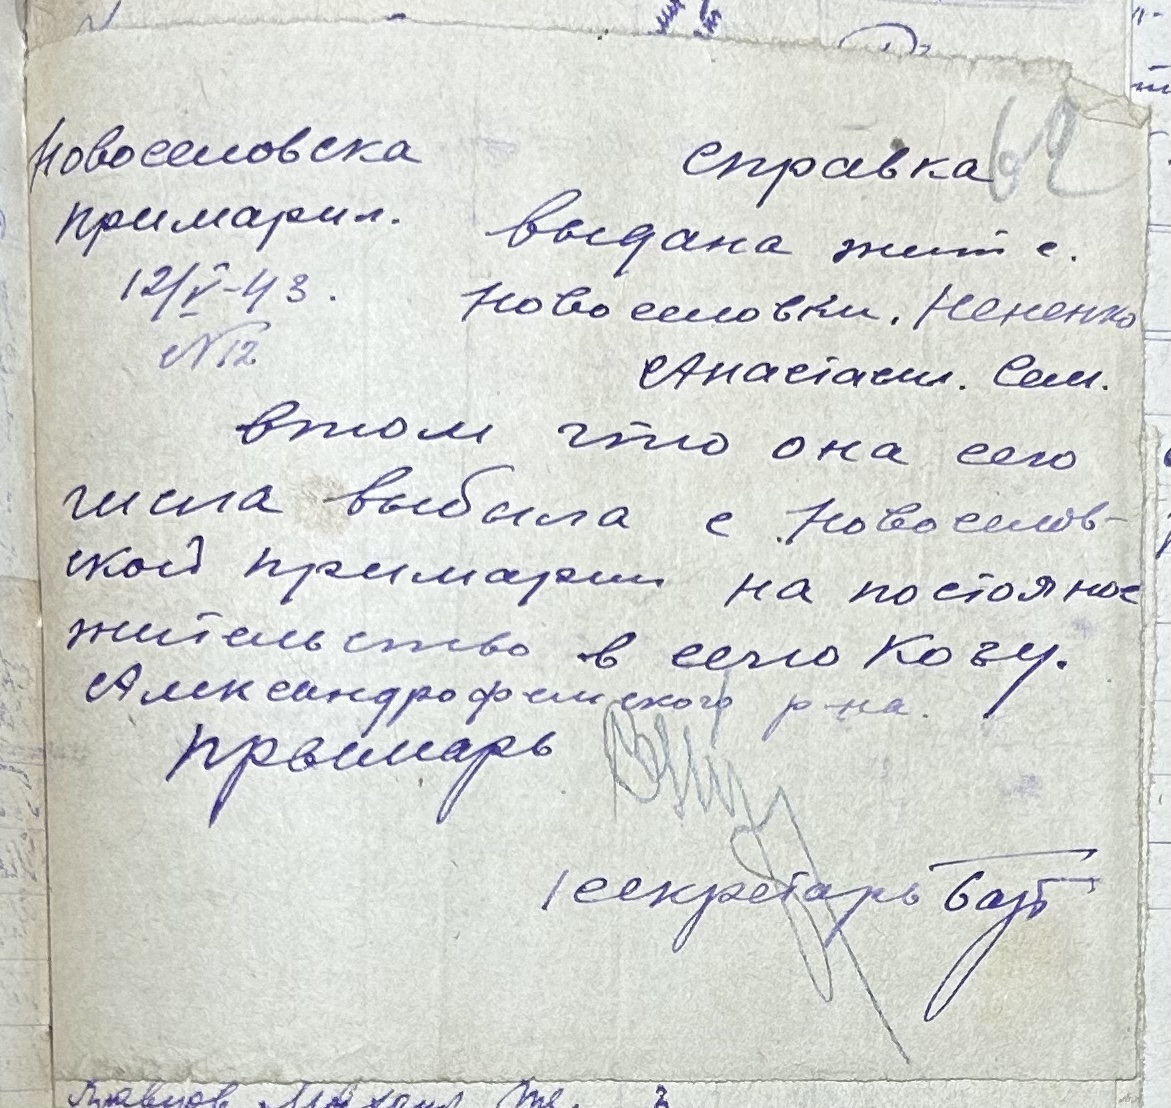 62
Новоселовска
примарил.
12/V-43.
№12
Справка
выдана жит с.
Новоселовки. Нененко
Анастасии. Сем.
втом что она сего
числа выбыла с Новоселов-
ской примарии на постояное
жительство в село Козу.
Александрофельского р-на.
Прымарь
секретарь